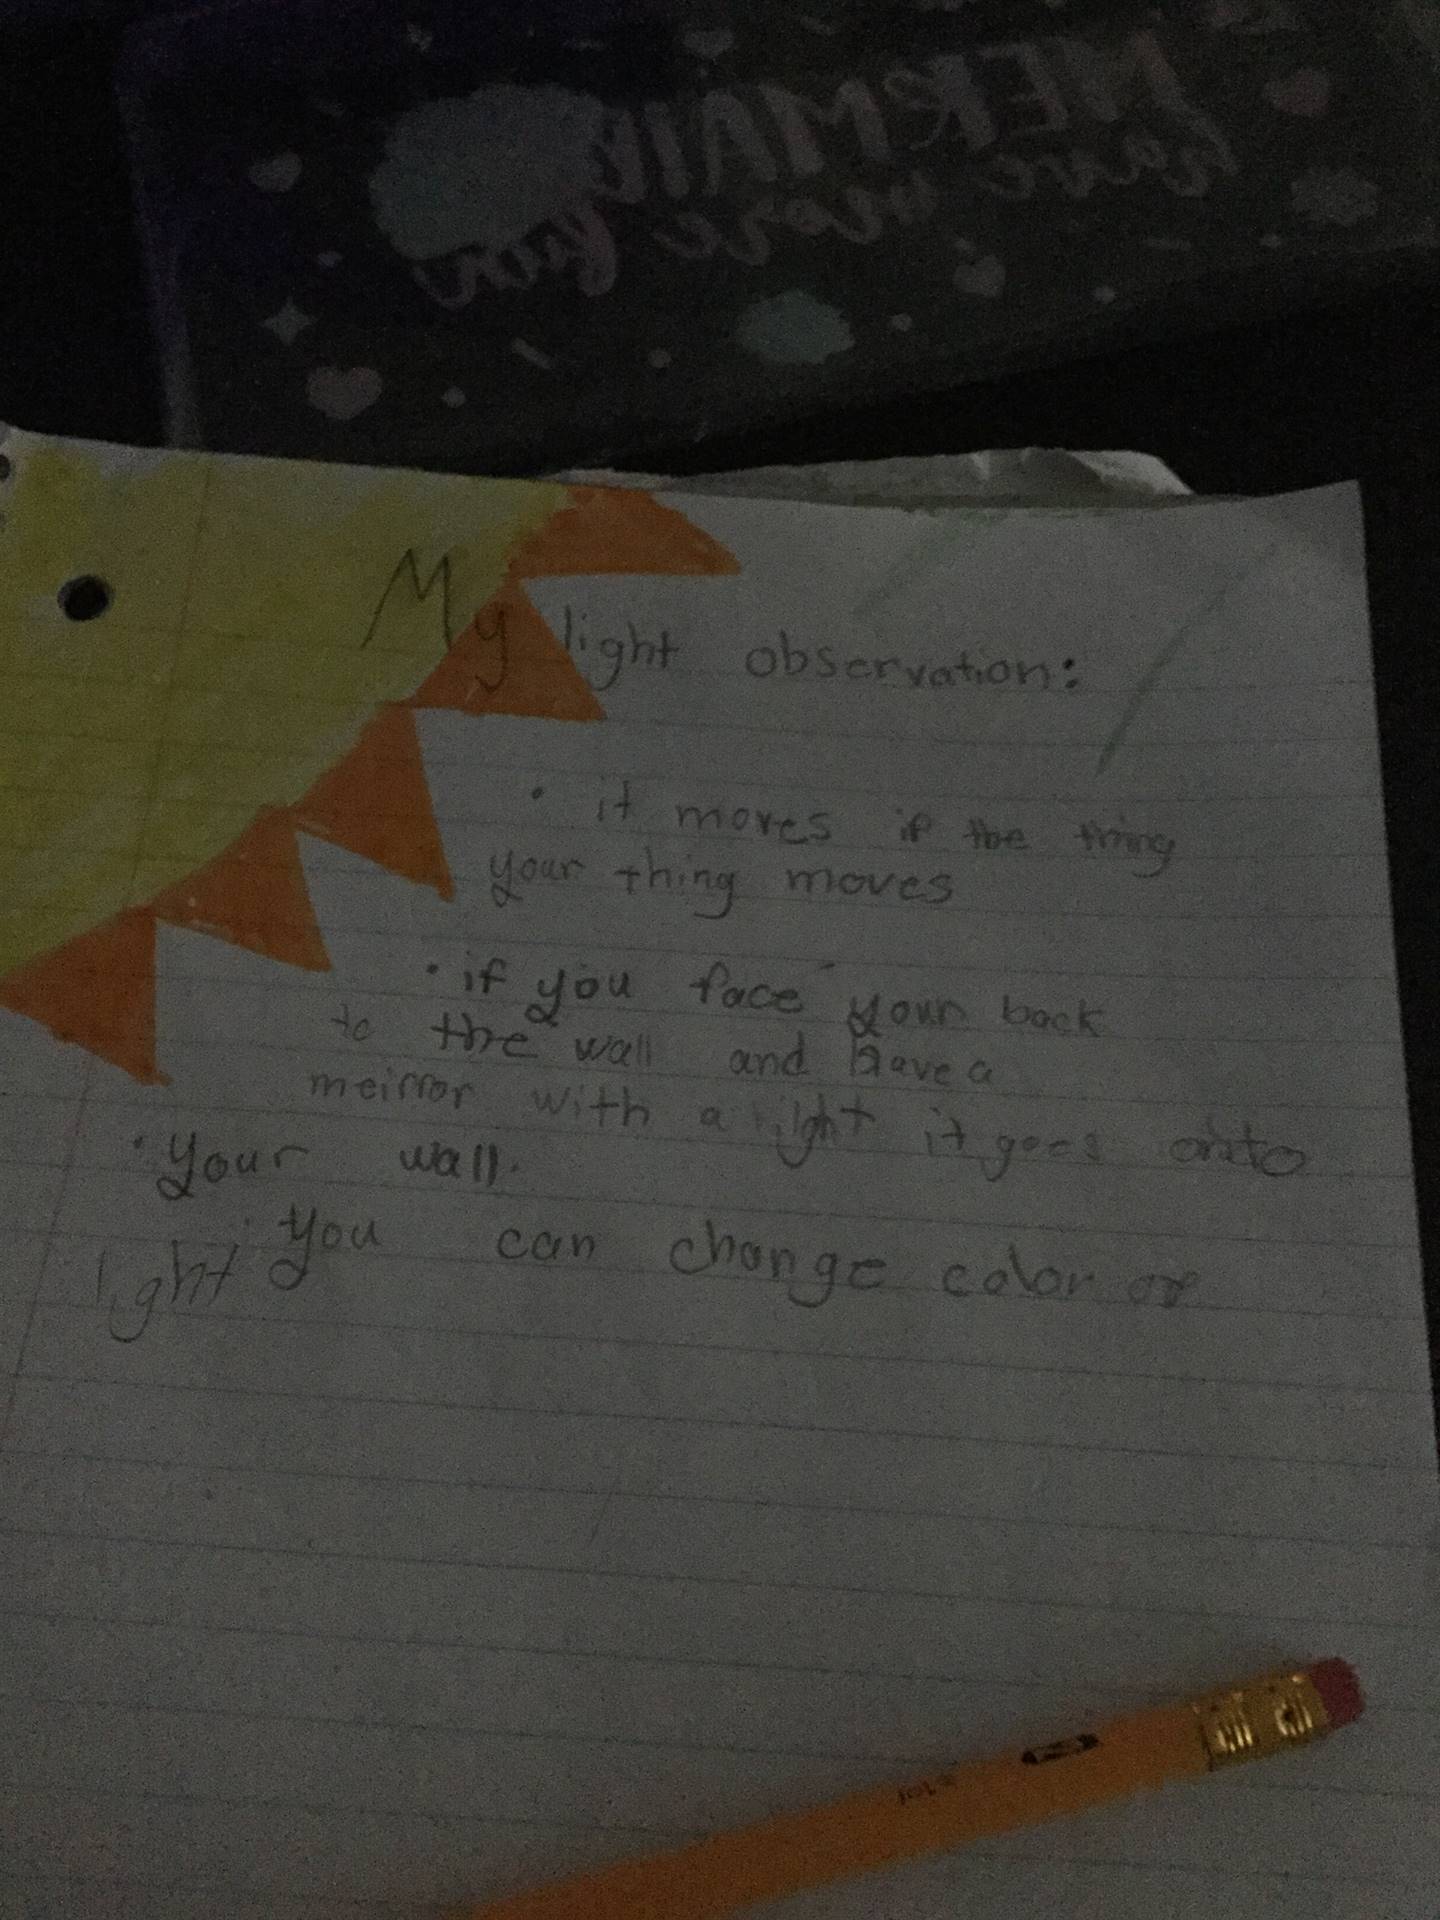 MERMAID
have more fun
My light observation:
• it moves if the thing
your thing moves
• if you face your back
to the wall and have a
meirror with a light it goes onto
• your wall.
• you can change color or
light